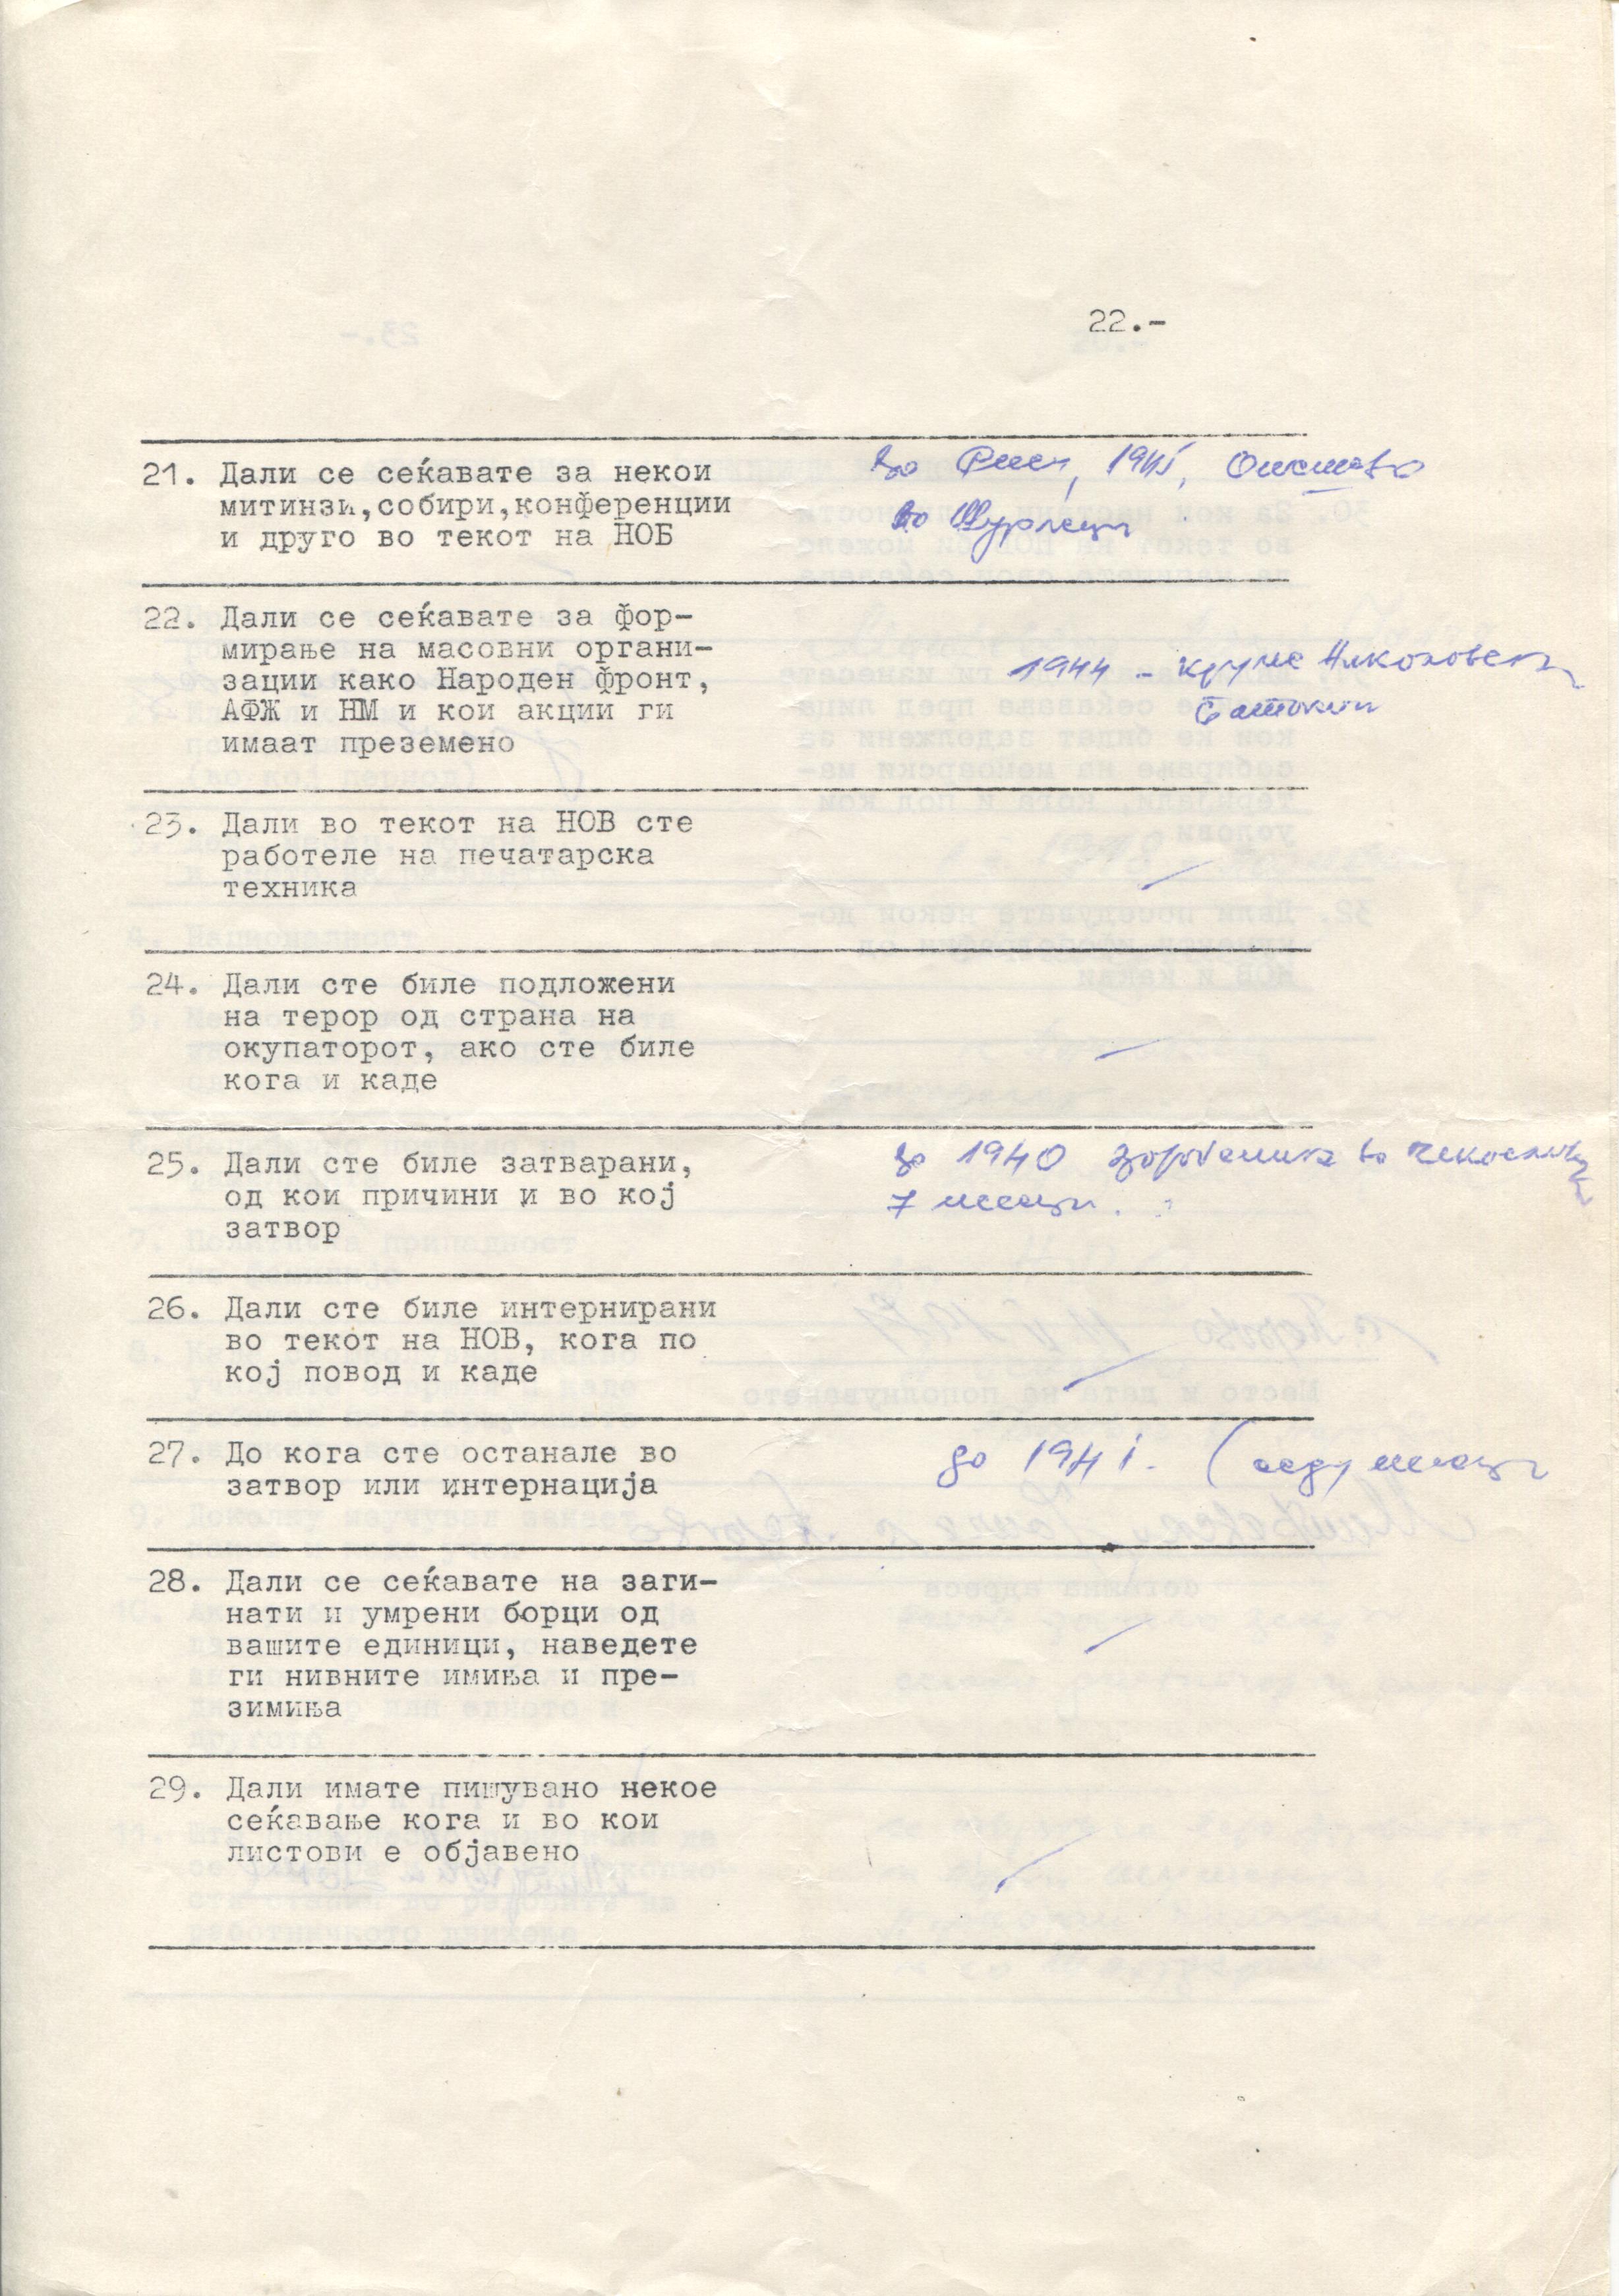 22.-
21. Дали се сеќавате за некои
митинзи,собири,конференции
и друго во текот на НОБ
во 1945,
во
22. Дали се сеќавате за фор-
мирање на масовни органи-
зации како Народен фронт,
АФЖ и НМ и кои акции ги
имаат преземено
1944 - Круме Николовски
23. Дали во текот на НОВ сте
работеле на печатарска
техника
24. Дали сте биле подложени
на терор од страна на
окупаторот, ако сте биле
кога и каде
25. Дали сте биле затварани,
од кои причини и во кој
затвор
во 1940 во
7 месеци.
26. Дали сте биле интернирани
во текот на НОВ, кога по
кој повод и каде
27. До кога сте останале во
затвор или интернација
до 1941. (седум месеци
28. Дали се сеќавате на заги-
нати и умрени борци од
вашите единици, наведете
ги нивните имиња и пре-
зимиња
29. Дали имате пишувано некое
сеќавање кога и во кои
листови е објавено